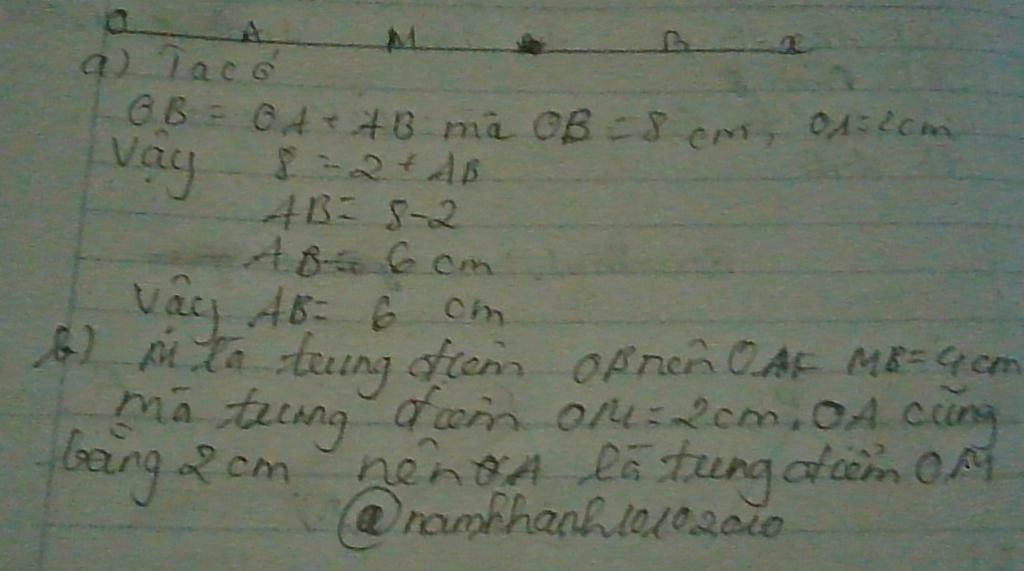 O A M B x
a) Ta có
OB = OA + AB mà OB = 8 cm, OA = 2cm
Vậy 8 = 2 + AB
AB = 8-2
AB = 6 cm
Vậy AB = 6 cm
b) M là trung điểm OB nên OM = MB = 4cm
mà trung điểm OM = 2cm, OA cũng
bằng 2cm nên A là trung điểm OM
@namkhanh10102010